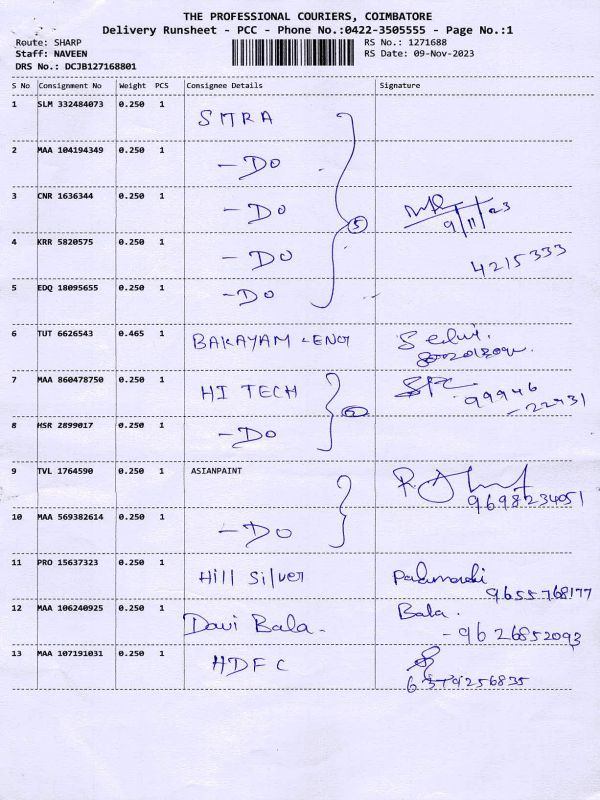 THE PROFESSIONAL COURIERS, COIMBATORE
Delivery Runsheet - PCC - Phone No.:0422-3505555 - Page No.:1
Route: SHARP RS No.: 1271688
Staff: NAVEEN RS Date: 09-Nov-2023
DRS No.: DCJB127168801
S No Consignment No Weight PCS Consignee Details Signature
1 SLM 332484073 0.250 1 SITRA
2 MAA 104194349 0.250 1 - DO
3 CNR 1636344 0.250 1 - DO 5 9/11/23
4 KRR 5820575 0.250 1 - DO 4215333
5 EDQ 18095655 0.250 1 - DO
6 TUT 6626543 0.465 1
7 MAA 860478750 0.250 1 HI TECH 99946
-22431
8 HSR 2899017 0.250 1 - DO
9 TVL 1764590 0.250 1 ASIANPAINT 9698234051
10 MAA 569382614 0.250 1 - DO
11 PRO 15637323 0.250 1 Hill Silver 9655768177
12 MAA 106240925 0.250 1 Davi Bala. Bala.
- 9626852093
13 MAA 107191031 0.250 1 HDFC 6379256835